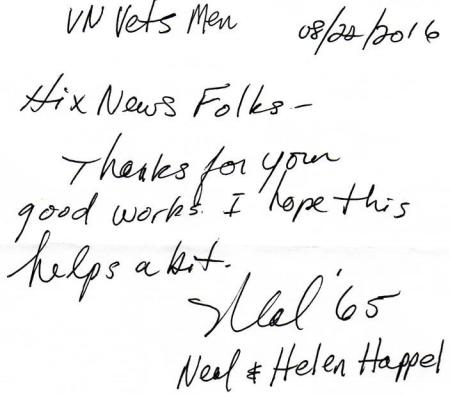 VN Vets Men 08/22/2016
Hix News Folks -
Thanks for your
good works. I hope this
helps a bit.
Neal '65
Neal & Helen Happel